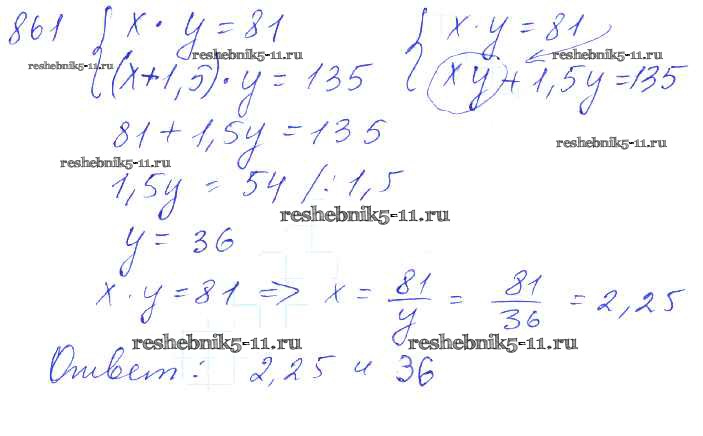 861 { x · y = 81 { x · y = 81
reshebnik5-11.ru reshebnik5-11.ru reshebnik5-11.ru
(x+1,5) · y = 135 xy + 1,5y = 135
81 + 1,5y = 135
reshebnik5-11.ru
reshebnik5-11.ru
1,5y = 54 /: 1,5
reshebnik5-11.ru
y = 36
x · y = 81 => x = 81/y = 81/36 = 2,25
reshebnik5-11.ru reshebnik5-11.ru
Ответ: 2,25 и 36